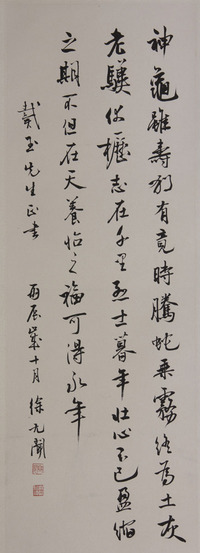 神龜雖壽猶有竟時騰蛇乘霧終為土灰
老驥伏櫪志在千里烈士暮年壯心不已盈縮
之期不但在天養怡之福可得永年
戴玉先生正書 丙辰歲十月 徐九聞